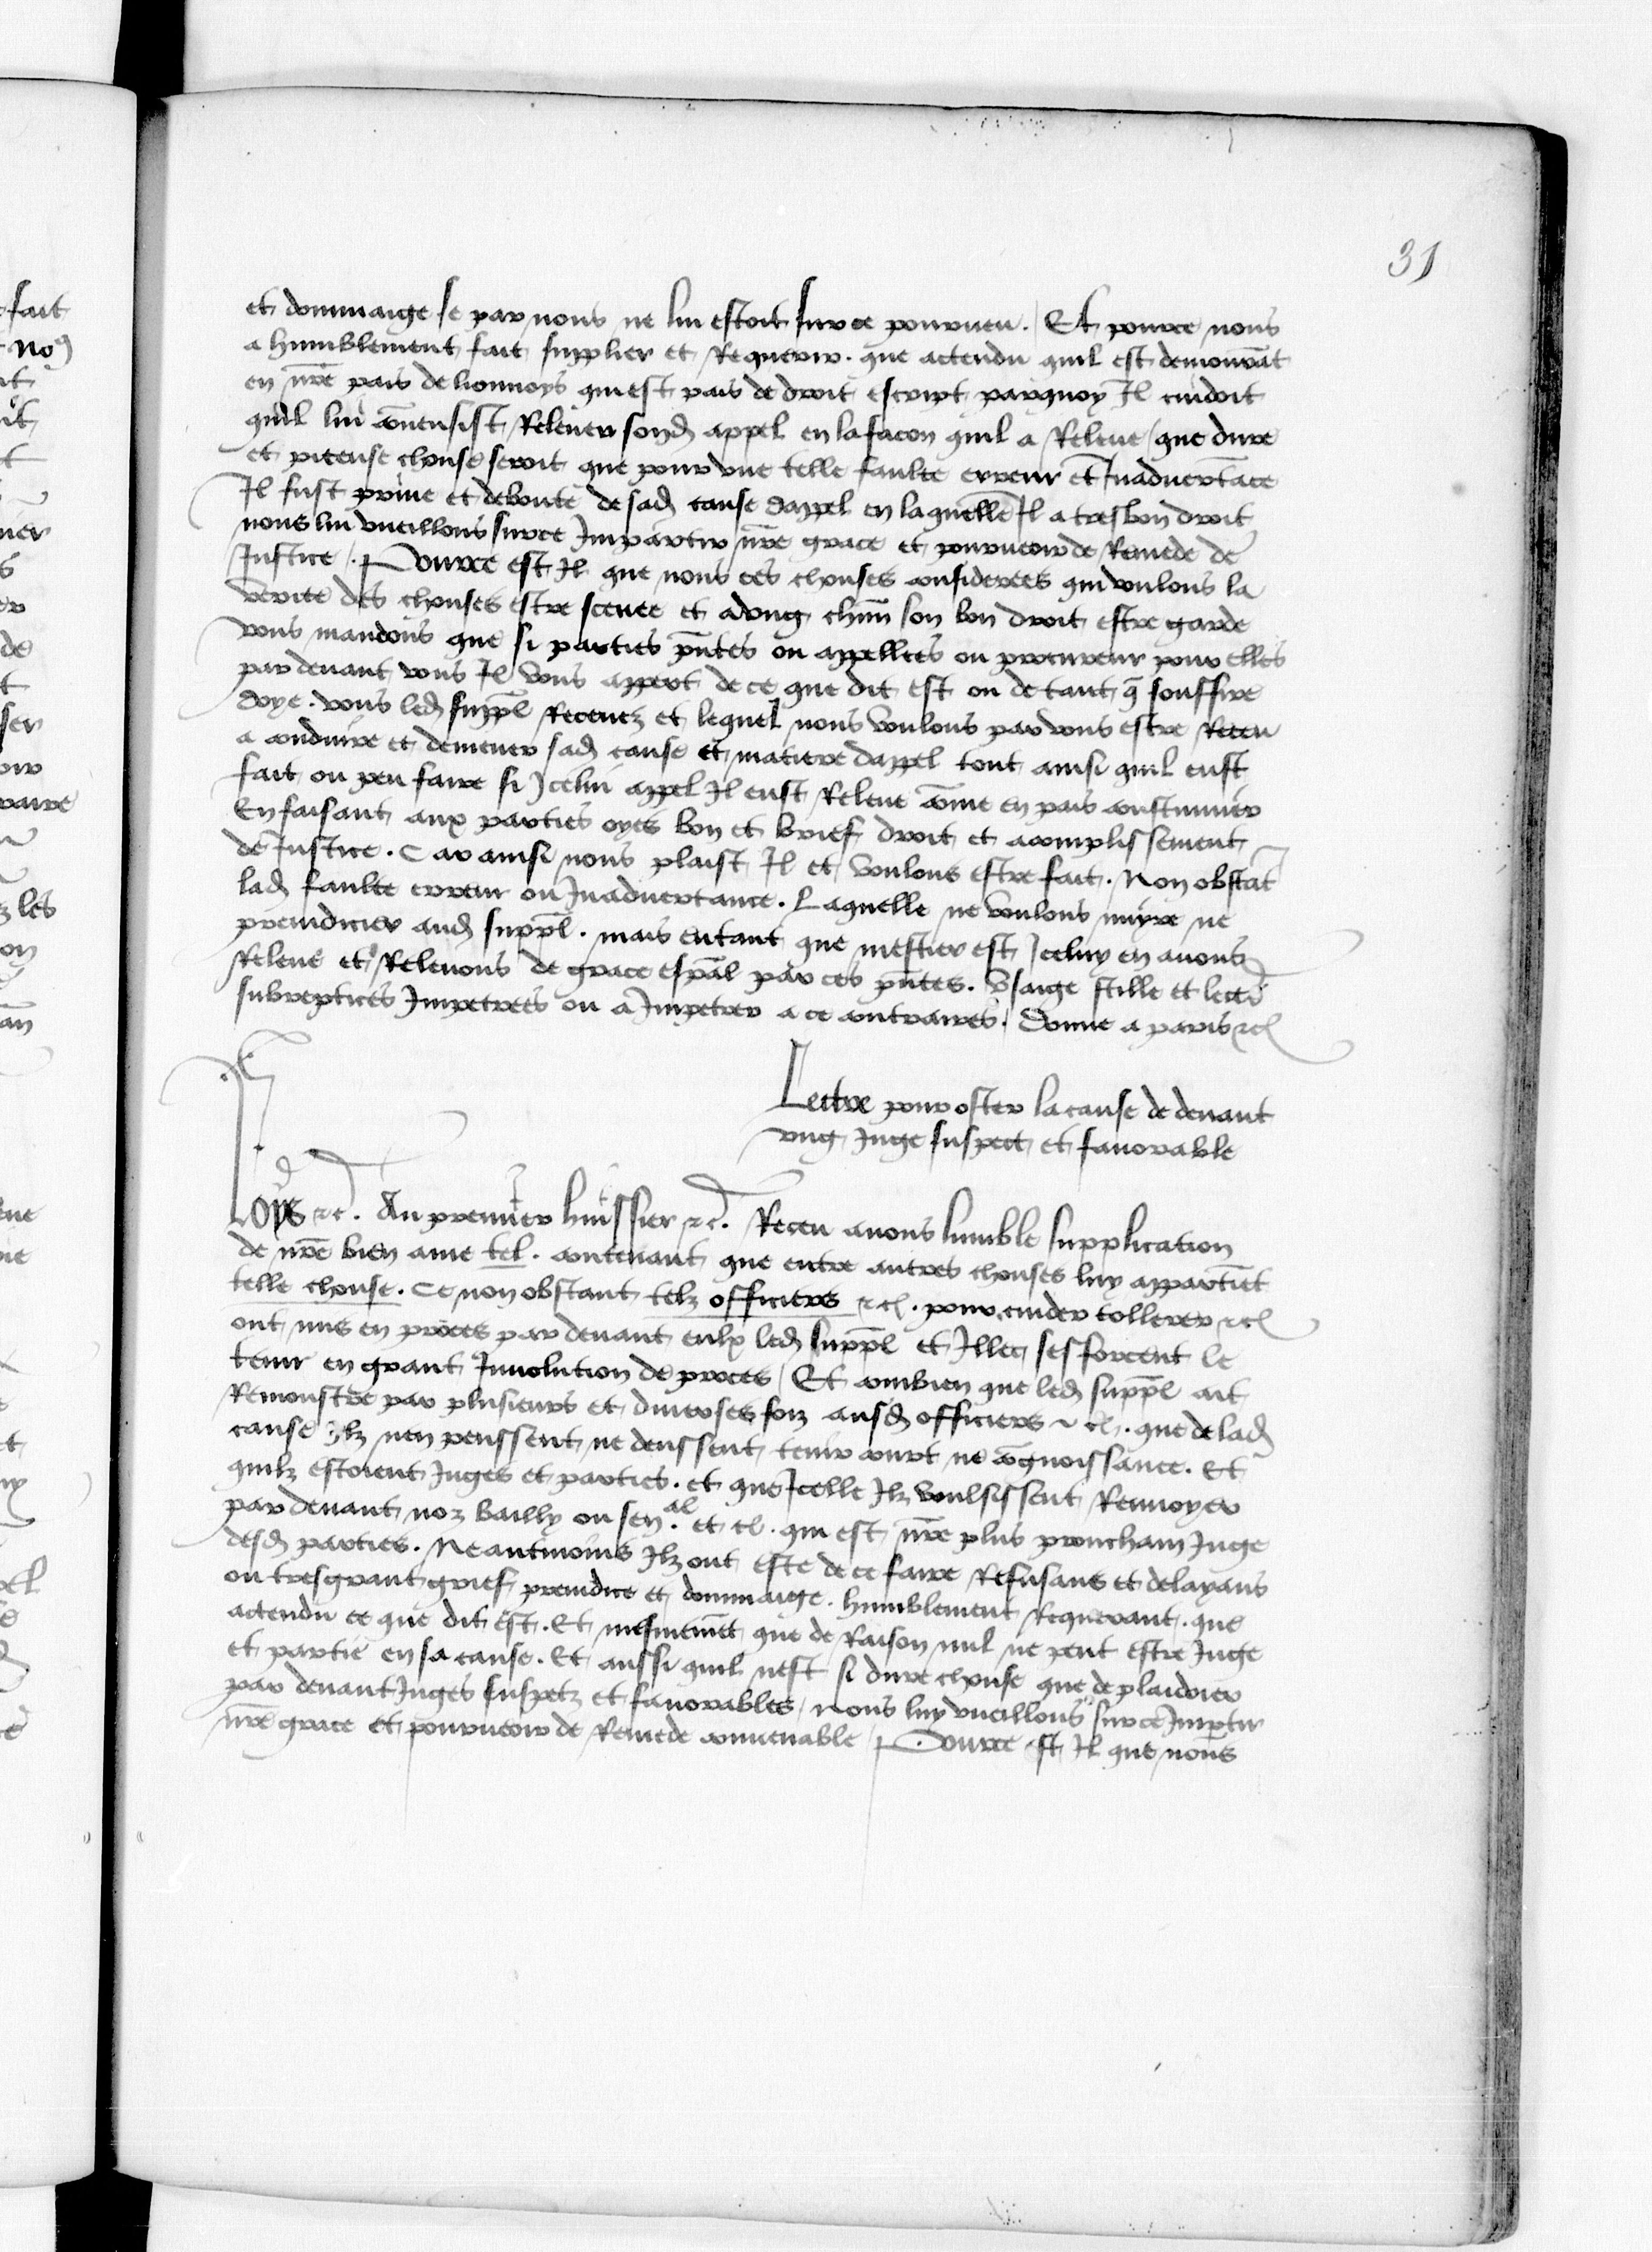 31
et dommaige se par nous ne lui estoit sur ce pourueu. Et pource nous
a humblement fait supplier et Requerir. que actendu quil est demourāt
en nr̄e pais de lionnoys qui est pais de droit escript parquoy Il cuidoit
quil lui cōuensist Releuer sond appel en la facon quil a Releue / que dure
et piteuse chouse seroit que pour vne telle faulte erreur et Inaduertāce
Il fust priue et deboute de sad cause dappel en laquelle Il a tresbon droit
nous lui vueillons surce Impartir nr̄e grace et pourueoir de Remede de
Justice / Pource est Il que nous ces chouses considerees qui voulons la
verite des chouses estre sceuee et a vng chūn son bon droit estre garde
vous mandons que si parties pn̄tes ou appellees ou procureur pour elles
par deuant vous Il vous appert de ce que dit est ou de tant q̄ souffire
doye. vous led suppl̄ Receuez et lequel nous voulons par vous estre Receu
a conduire et demener sad cause et matiere dappel tout ainsi quil eust
fait ou peu faire si Icelui appel Il eust Releue cōme en pais coustumier
En faisant aux parties oyes bon et brief droit et acomplissement
de Justice. Car ainsi nous plaist Il et voulons estre fait. Non obstāt
lad faulte erreur ou Inaduertance. Laquelle ne voulons nuyre ne
preiudicier aud suppl̄. mais entant que mestier est Iceluy en auons
Releue et Releuons de grace esp̄al par ces pn̄tes. Vsaige stille et lectr̄
subreptices Impetrees ou a Impetrer a ce contraires. Donne a paris etc
Lectre pour oster la cause de deuant
vng Juge suspect et fauorable
Loys etc. Au premier huissier etc. Receu auons lumble supplication
de nr̄e bien ame tel. contenant que entre autres chouses luy appartiēt
telle chouse. Ce non obstant telz officiers etc. pour cuider tollerer etc
ont mis en proces par deuant eulx led suppl̄ et Illec sesforcent le
tenir en grant Inuolution de proces / Et combien que led suppl̄ ait
Remonstre par plusieurs et diuerses foiz ausd officiers etc. que de lad
cause Ilz nen peussent ne deussent tenir court ne cōgnoissance. Et
quilz estoient Juges et parties. et que Icelle Ilz voulsissent Renuoyer
par deuant noz bailly ou sen.al et c. qui est nr̄e plus prouchain Juge
desd parties. Neantmoins Ilz ont este de ce faire Refusans et delayans
ou tresgrant grief preiudice et dommaige. humblement Requerant. que
actendu ce que dit est. Et mesmemēt que de Raison nul ne peut estre Juge
et partie en sa cause. Et aussi quil nest si dure chouse que de plaidoier
par deuant Juges suspetz et fauorables / nous luy vueillons sur ce Imptir
nr̄e grace et pourueoir de Remede conuenable / Pource est Il que nous